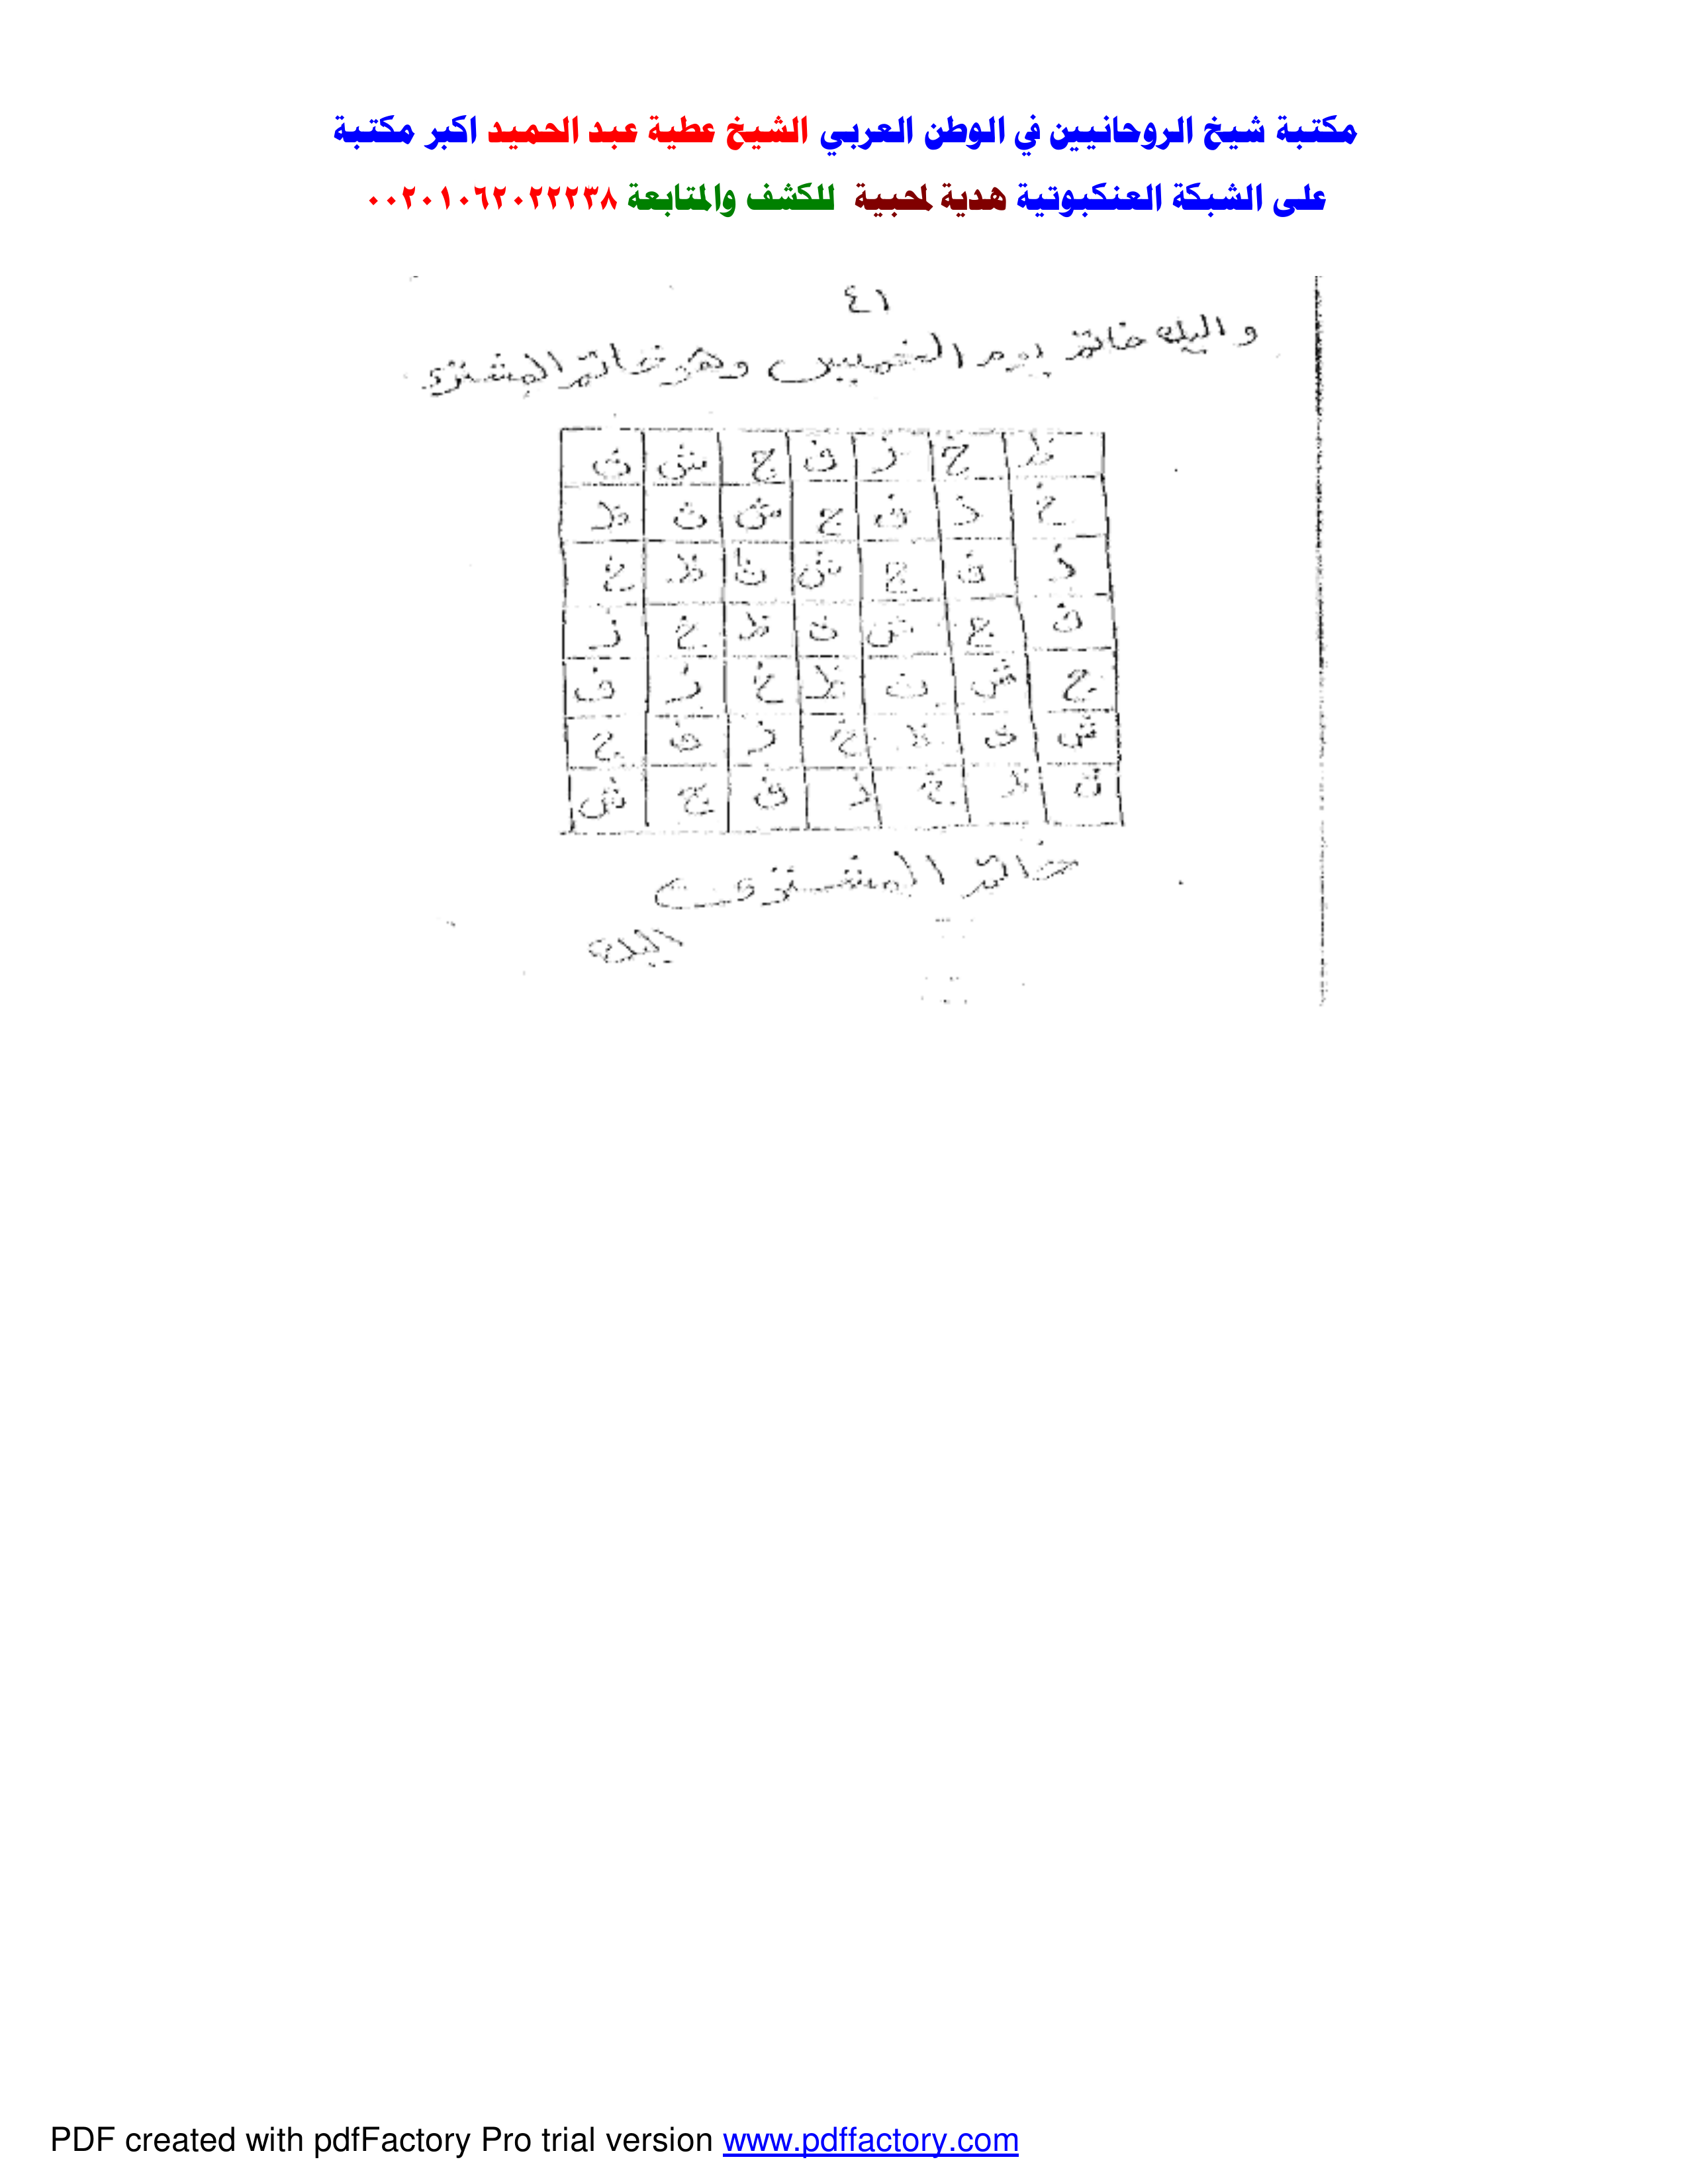 مكتبة شيخ الروحانيين في الوطن العربي الشيخ عطية عبد الحميد اكبر مكتبة
على الشبكة العنكبوتية هدية لمحبية للكشف والمتابعة ٠٠٢٠١٠٦٢٠٢٢٢٣٨
٤١
واليك خاتم يوم الخميس وهو خاتم المشترى
ظ خ ز ف ج ش ث
خ ز ف ج ش ث ظ
ز ف ج ش ث ظ خ
ف ج ش ث ظ خ ز
ج ش ث ظ خ ز ف
ش ث ظ خ ز ف ج
ث ظ خ ز ف ج ش
خاتم المشترى
اليك
PDF created with pdfFactory Pro trial version www.pdffactory.com